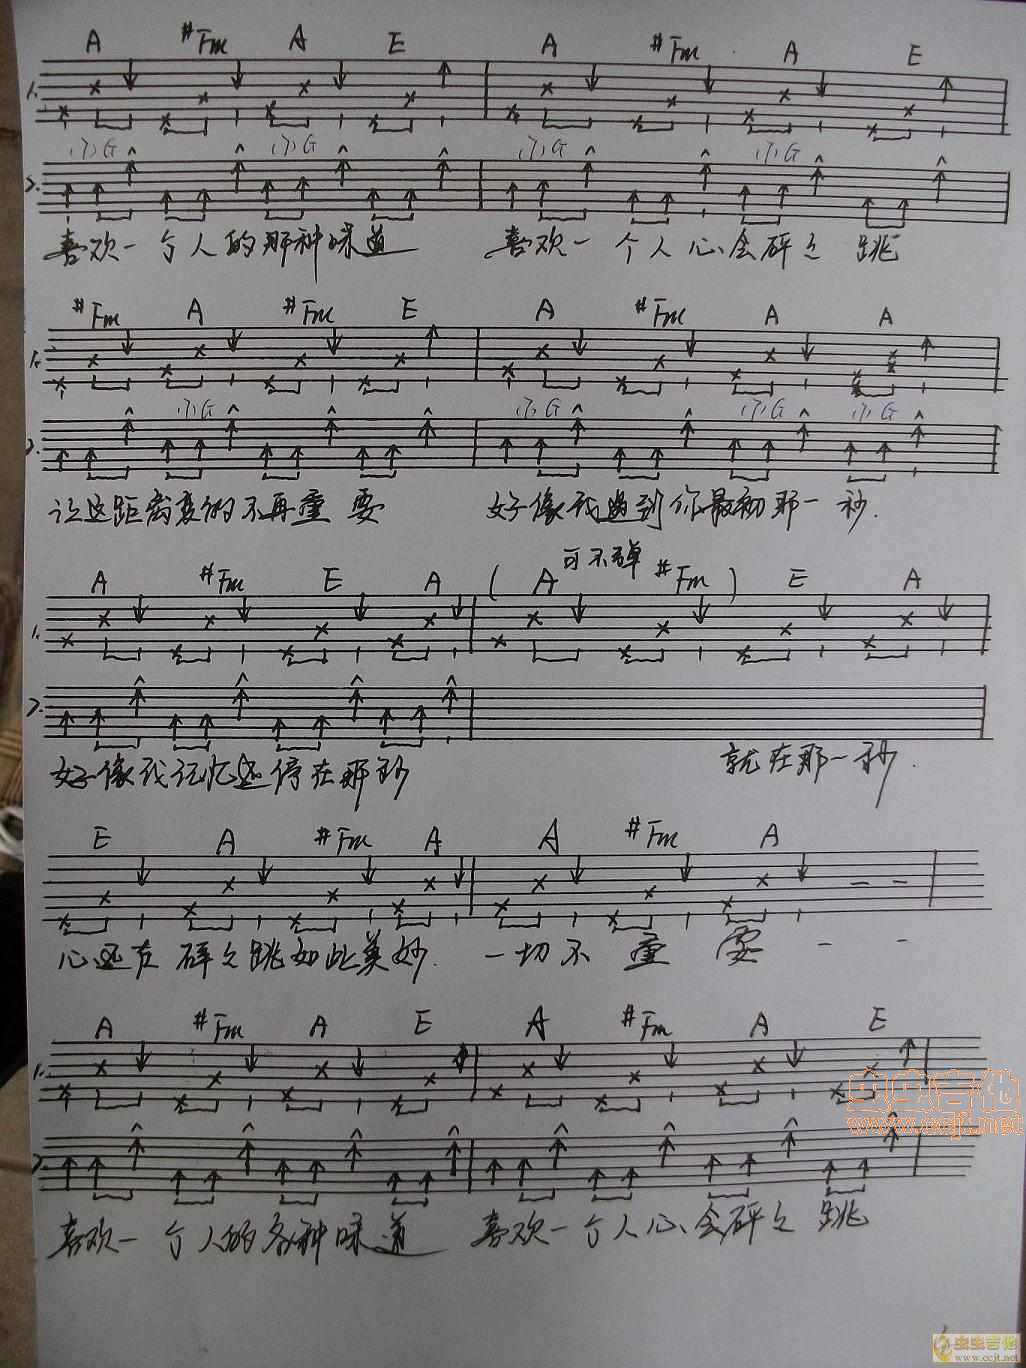 A #Fm A E A #Fm A E
1.
(7)G (7)G (7)G (7)G
2.
喜欢一个人的那种味道 喜欢一个人心会砰之跳
#Fm A #Fm E A #Fm A A
1.
(7)G (7)G (7)G (7)G
2.
让这距离变的不再重要 好像我遇到你最初那一秒.
A #Fm E A ( A 可不弹 #Fm ) E A
1.
2.
好像我记忆还停在那秒 就在那一秒.
E A #Fm A A #Fm A
心还在砰之跳如此美妙. 一切不重要 - -
A #Fm A E A #Fm A E
1.
2.
喜欢一个人的各种味道 喜欢一个人心会砰之跳
虫虫吉他
www.ccjt.net
虫虫吉他
www.ccjt.net